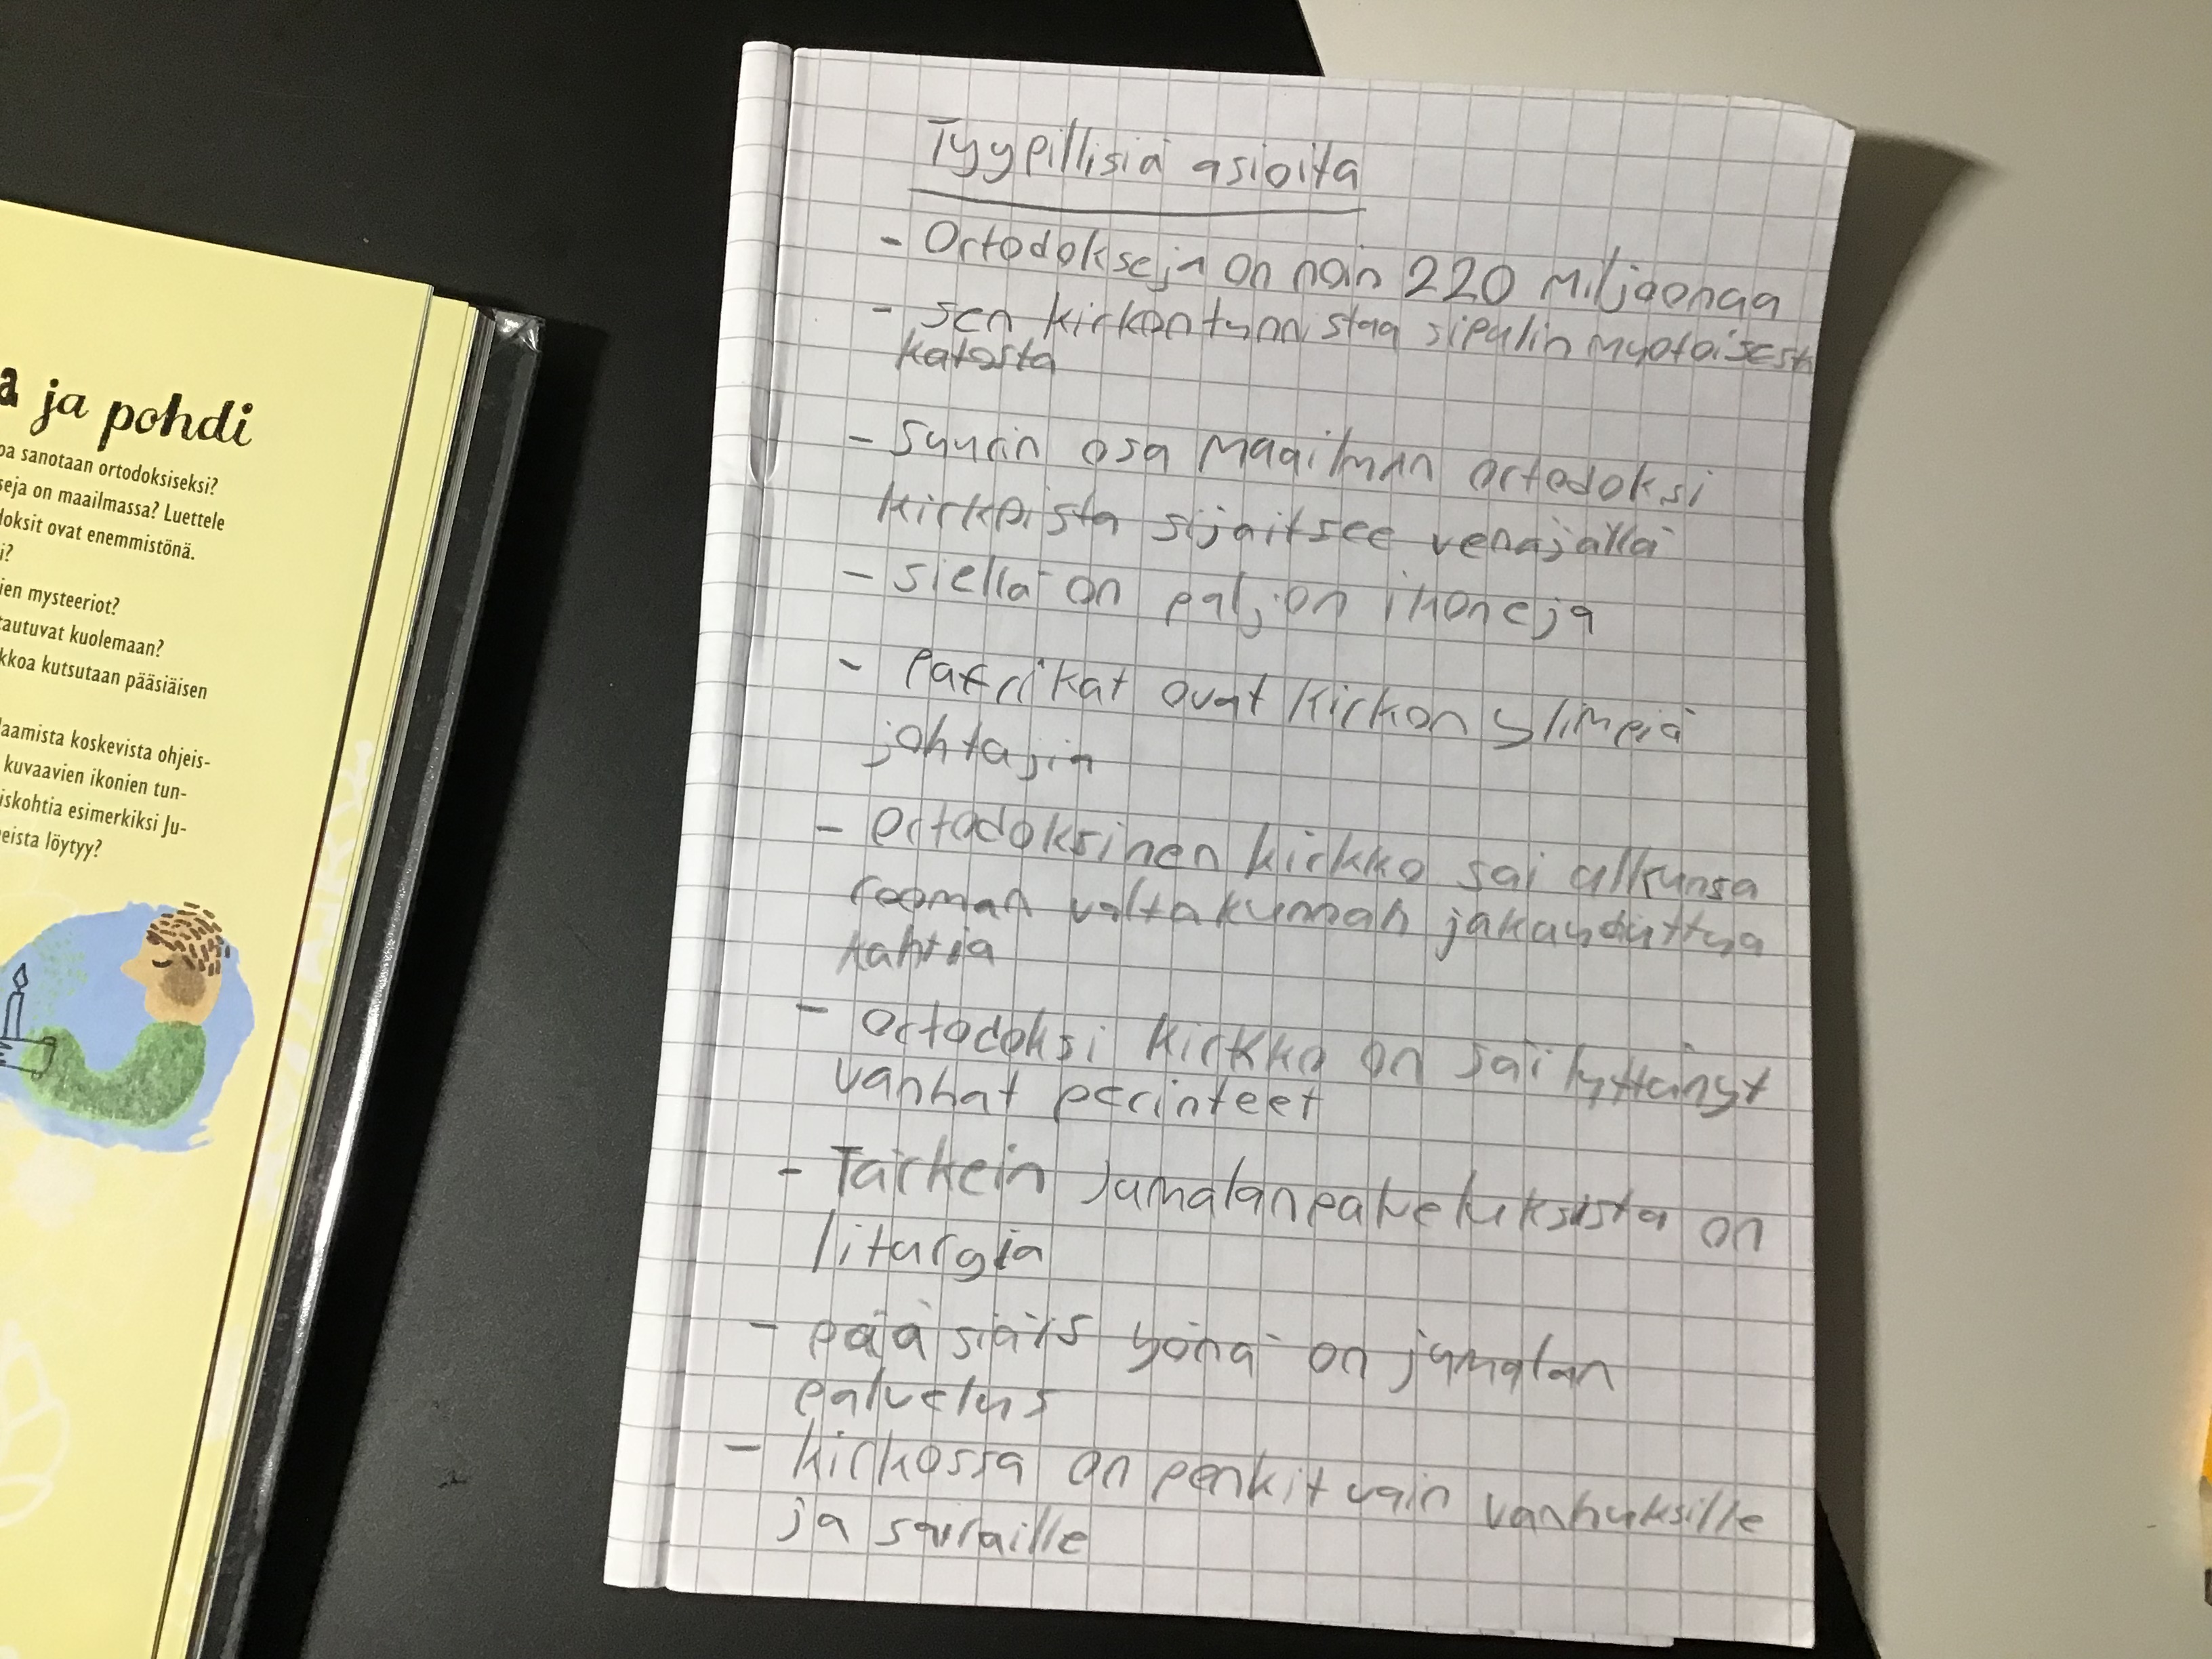 a ja pohdi
pa sanotaan ortodoksiseksi?
seja on maailmassa? Luettele
doksit ovat enemmistönä.
i?
ien mysteeriot?
tautuvat kuolemaan?
kkoa kutsutaan pääsiäisen
laamista koskevista ohjeis-
kuvaavien ikonien tun-
iskohtia esimerkiksi Ju-
eista löytyy?
Tyypillisiä asioita
- Ortodokseja on noin 220 miljoonaa
- sen kirkon tunnistaa sipulin myötäisestä
katosta
- suurin osa maailman ortodoksi
kirkoista sijaitsee venäjällä
- siellä on paljon ikoneja
- patriikat ovat kirkon ylimpiä
johtajia
- ortodoksinen kirkko sai alkunsa
rooman valtakunnan jakauduttua
kahtia
- ortodoksi kirkko on säilyttänyt
vanhat perinteet
- Tärkein jumalanpalveluksista on
liturgia
- pääsiäis yönä on jumalan
palvelus
- kirkossa on penkit vain vanhuksille
ja sairaille